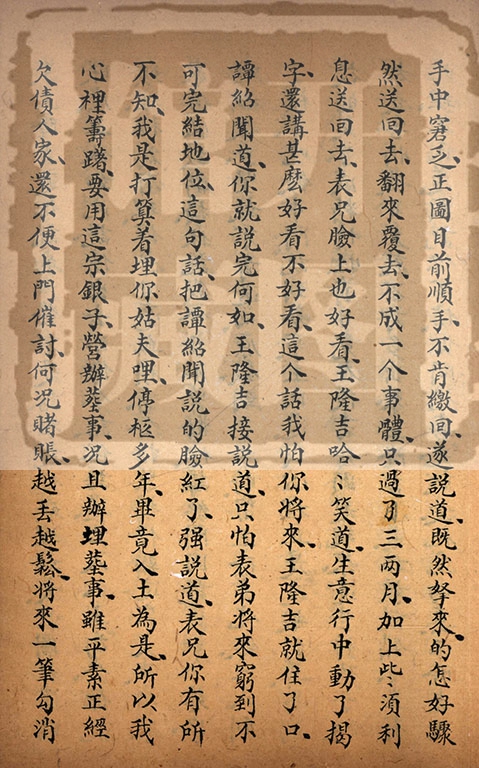 手中窘乏、正圖目前順手、不肯繳回、遂說道、既然拏來的怎好驟
然送回去、翻來覆去、不成一个事體、只過了三兩月、加上些須利
息送回去、表兄臉上也好看、王隆吉哈〻笑道、生意行中動了揭
字、還講甚麽好看不好看、這个話我怕你將來、王隆吉就住了口、
譚紹聞道、你就說完何如、王隆吉接說道、只怕表弟將來窮到不
可完結地位、這句話、把譚紹聞說的臉紅了、强說道、表兄你有所
不知、我是打算着埋你姑夫哩、停柩多年、畢竟入土為是、所以我
心裡籌躇、要用這宗銀子、營辦塟事、况且辦埋塟事、雖平素正經
欠債人家、還不便上門催討、何況賭賬、越丢越鬆、將來一筆勾消